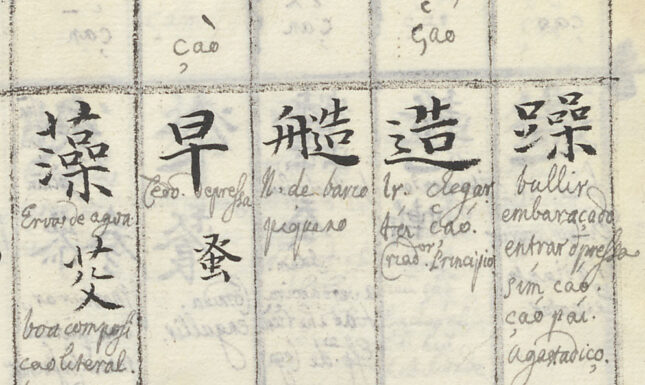 çaò
çaò
藻
Ervas de agoa
boa composi
cao literal.
早
Cedo. depressa
蚤
N. de barco
piqueno
造
Ir. chegar
çaó.
Criador, Principio
躁
bullir
embaraçado
entrar depressa
sím çáo.
çáo pái.
agastadiço.